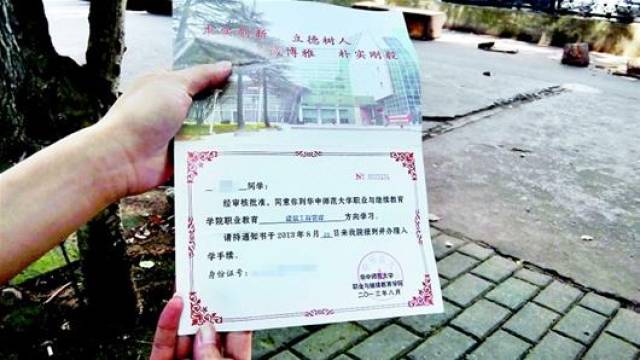 求实创新 立德树人
诚博雅 朴实刚毅
同学：
经审核批准，同意你到华中师范大学职业与继续教育
学院职业教育 建筑工程管理 方向学习。
请持通知书于2013年8月 日来我院报到并办理入
学手续。
身份证号：
华中师范大学
职业与继续教育学院
二〇一三年八月